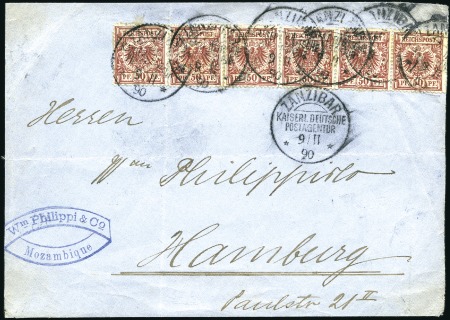 REICHSPOST
50 PF 50
ZANZIBAR
KAISERL. DEUTSCHE
POSTAGENTUR
9/11
90
Herren
Wm Philippi & Co
Hamburg
Paulstr 21 II
Wm Philippi & Co.
Mozambique